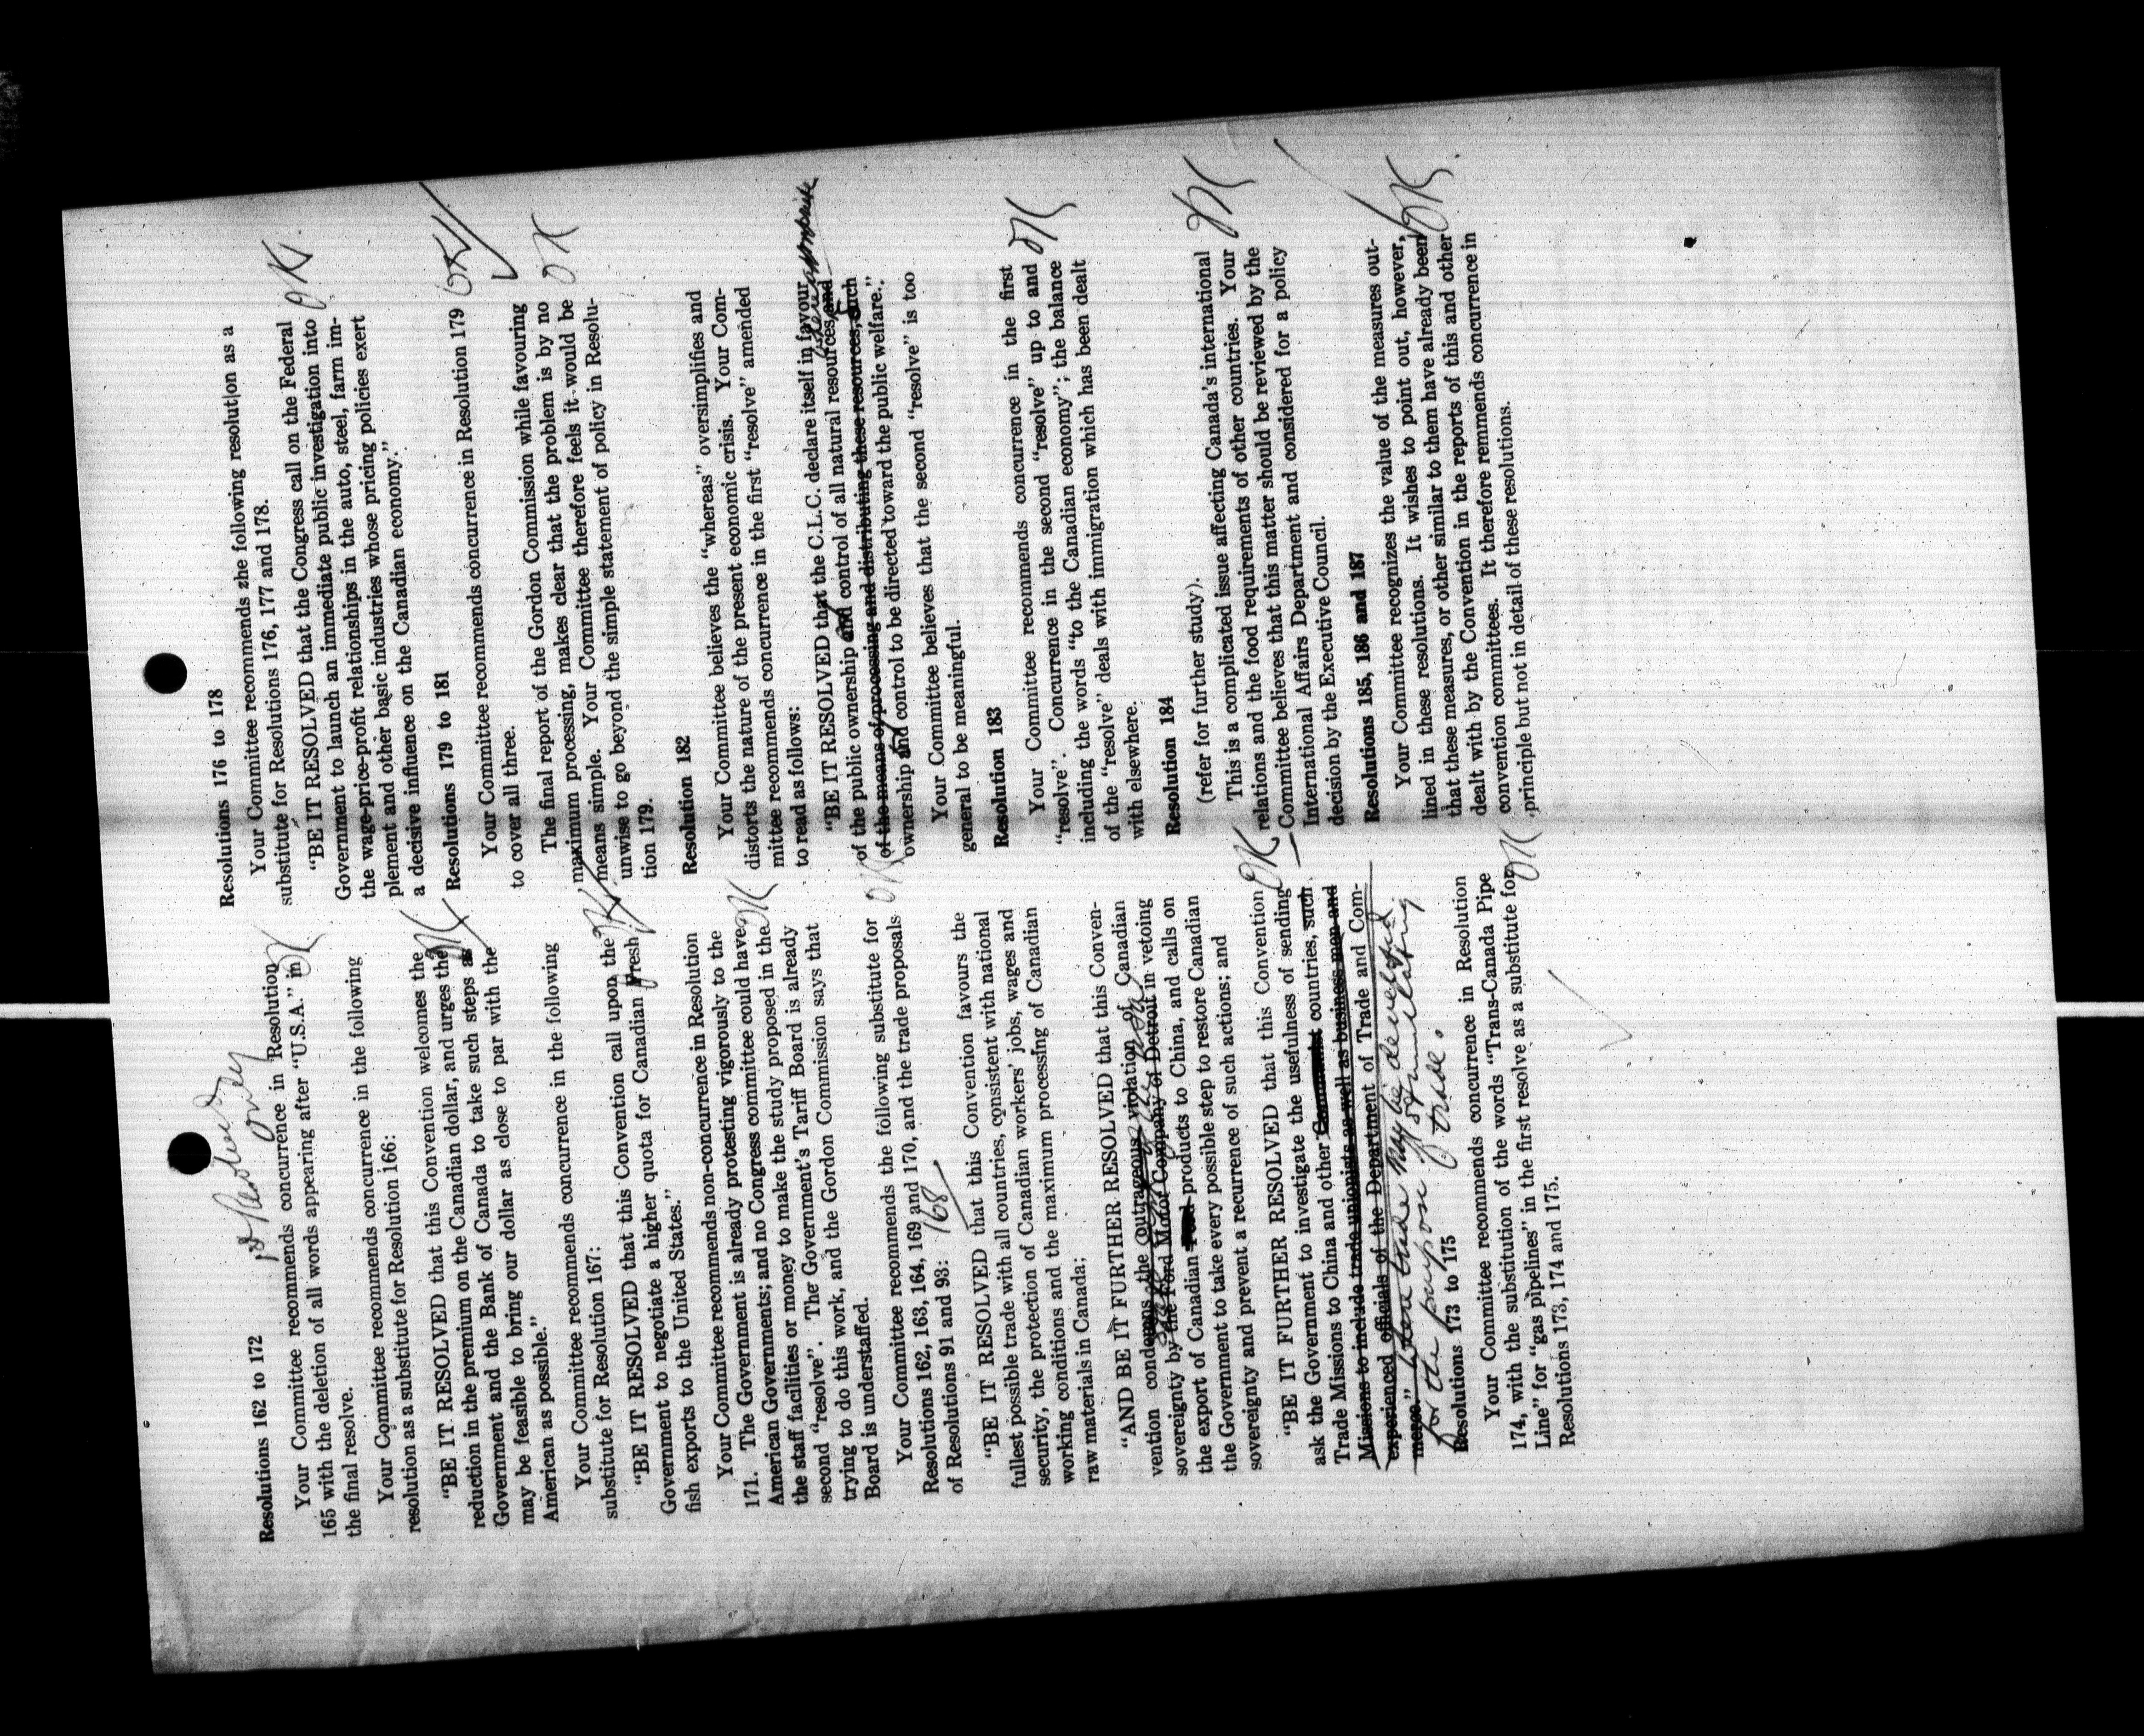 Resolutions 162 to 172
Your Committee recommends concurrence in Resolution
165 with the deletion of all words appearing after “U.S.A.” in OK
the final resolve.
Your Committee recommends concurrence in the following
resolution as a substitute for Resolution 166:
“BE IT RESOLVED that this Convention welcomes the
reduction in the premium on the Canadian dollar, and urges the OK
Government and the Bank of Canada to take such steps as
may be feasible to bring our dollar as close to par with the
American as possible.”
Your Committee recommends concurrence in the following
substitute for Resolution 167:
“BE IT RESOLVED that this Convention call upon the OK
Government to negotiate a higher quota for Canadian Fresh
fish exports to the United States.”
Your Committee recommends non-concurrence in Resolution
171. The Government is already protesting vigorously to the
American Governments; and no Congress committee could have OK
the staff facilities or money to make the study proposed in the
second “resolve”. The Government's Tariff Board is already
trying to do this work, and the Gordon Commission says that
Board is understaffed.
Your Committee recommends the following substitute for OK
Resolutions 162, 163, 164, 169 and 170, and the trade proposals
of Resolutions 91 and 93: 168
“BE IT RESOLVED that this Convention favours the
fullest possible trade with all countries, consistent with national
security, the protection of Canadian workers' jobs, wages and
working conditions and the maximum processing of Canadian
raw materials in Canada:
“AND BE IT FURTHER RESOLVED that this Conven-
vention condemns the outrageous violation of Canadian
sovereignty by the Ford Motor Company of Detroit in vetoing
the export of Canadian products to China, and calls on
the Government to take every possible step to restore Canadian
sovereignty and prevent a recurrence of such actions; and
“BE IT FURTHER RESOLVED that this Convention OK
ask the Government to investigate the usefulness of sending
Trade Missions to China and other Communist countries, such
Missions to include trade unionists as well as business men and
experienced officials of the Department of Trade and Com-
merce.” where trade may be developed
for the purpose of stimulating
trade.
Resolutions 173 to 175
Your Committee recommends concurrence in Resolution
174, with the substitution of the words “Trans-Canada Pipe
Line” for “gas pipelines” in the first resolve as a substitute for OK
Resolutions 173, 174 and 175.
Resolutions 176 to 178
Your Committee recommends zhe following resolution as a
substitute for Resolutions 176, 177 and 178.
“BE IT RESOLVED that the Congress call on the Federal OK
Government to launch an immediate public investigation into
the wage-price-profit relationships in the auto, steel, farm im-
plement and other basic industries whose pricing policies exert
a decisive influence on the Canadian economy.”
Resolutions 179 to 181
Your Committee recommends concurrence in Resolution 179 OK
to cover all three.
The final report of the Gordon Commission while favouring
maximum processing, makes clear that the problem is by no OK
means simple. Your Committee therefore feels it would be
unwise to go beyond the simple statement of policy in Resolu-
tion 179.
Resolution 182
Your Committee believes the “whereas” oversimplifies and
distorts the nature of the present economic crisis. Your Com-
mittee recommends concurrence in the first “resolve” amended
to read as follows:
“BE IT RESOLVED that the C.L.C. declare itself in favour
of the public ownership and control of all natural resources, and
of the means of processing and distributing these resources, such
ownership and control to be directed toward the public welfare.”
Your Committee believes that the second “resolve” is too
general to be meaningful.
Resolution 183
Your Committee recommends concurrence in the first
“resolve”. Concurrence in the second “resolve” up to and OK
including the words “to the Canadian economy”; the balance
of the “resolve” deals with immigration which has been dealt
with elsewhere.
Resolution 184
(refer for further study).
This is a complicated issue affecting Canada's international
relations and the food requirements of other countries. Your OK
Committee believes that this matter should be reviewed by the
International Affairs Department and considered for a policy
decision by the Executive Council.
Resolutions 185, 186 and 187
Your Committee recognizes the value of the measures out-
lined in these resolutions. It wishes to point out, however,
that these measures, or other similar to them have already been OK
dealt with by the Convention in the reports of this and other
convention committees. It therefore remmends concurrence in
principle but not in detail of these resolutions.